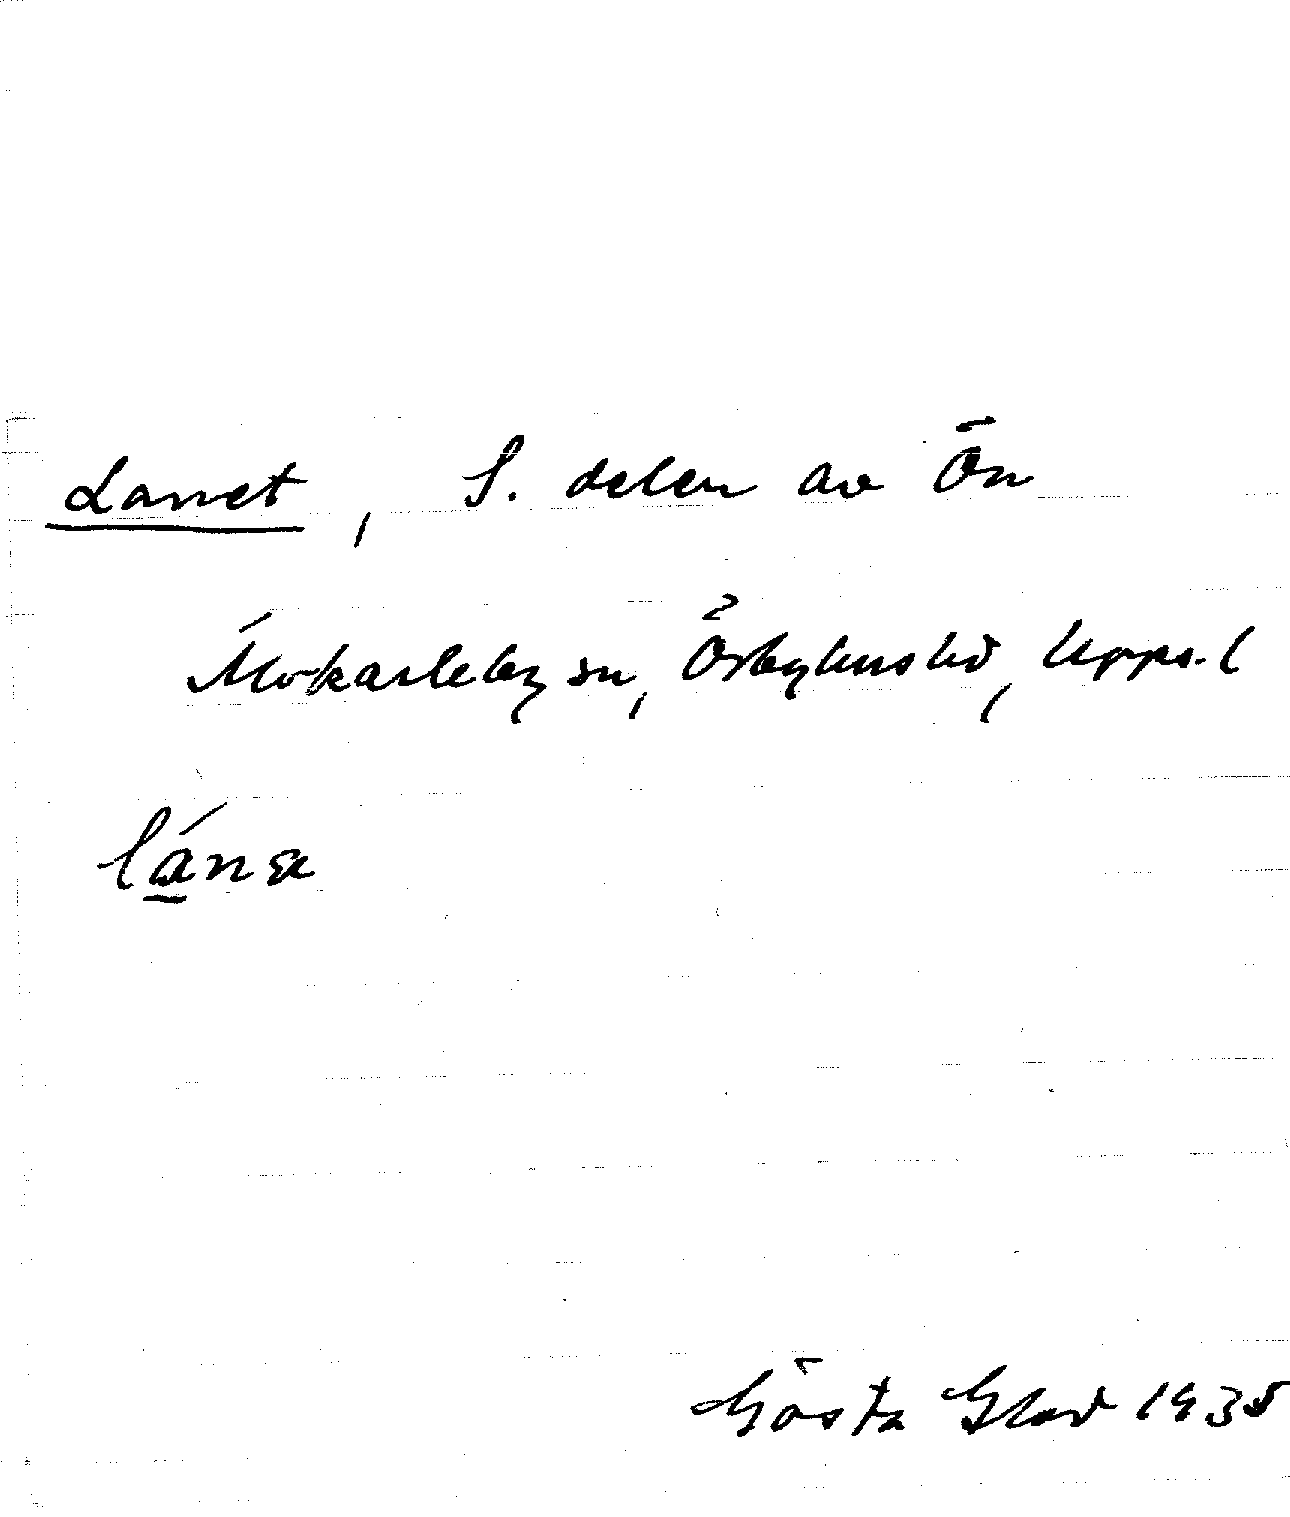 Lannet, S. delen av Ön
Älvkarleby sn, Örbyhus hd, Upps. l
lánæ
Gösta Glad 1935